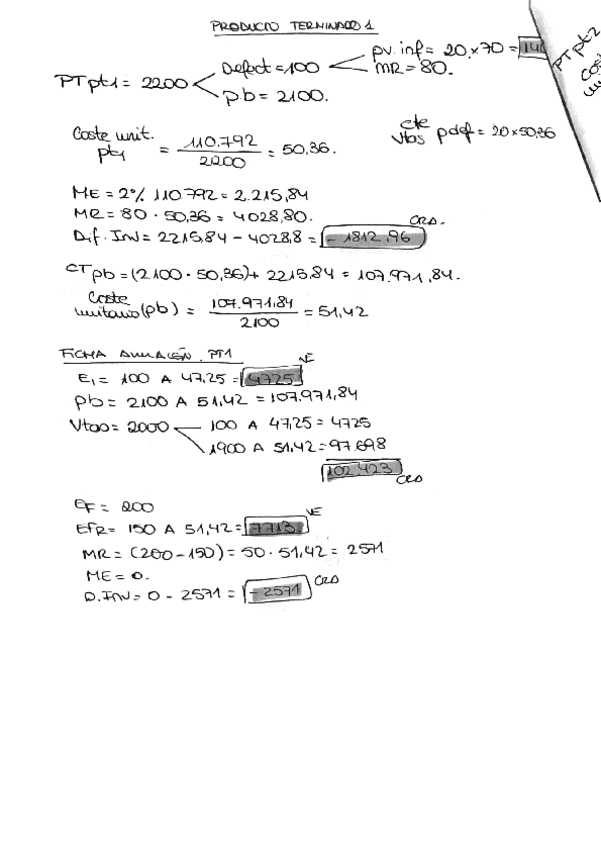 PRODUCTO TERMINADO 1
PTpt1 = 2200
Defect = 100
pv. inf = 20 x 70 =
MR = 80.
p.b = 2100.
PTpt2
Coste unit. pt1 = 110.792 / 2200 = 50,36.
cte vtas pdef = 20 x 50,36
ME = 2% 110.792 = 2.215,84
MR = 80 · 50,36 = 4028,80.
Dif. INV = 2215,84 - 4028,8 = - 1812,96 CRA.
CTpb = (2100 · 50,36) + 2215,84 = 107.971,84.
Coste unitario (pb) = 107.971,84 / 2100 = 51,42
FICHA ALMACÉN PT1
Ei = 100 A 47,25 = 4725 VE
pb = 2100 A 51,42 = 107.971,84
Vtas = 2000
100 A 47,25 = 4725
1900 A 51,42 = 97.698
102.423 CRA
EF = 200
EFR = 150 A 51,42 = 7713. VE
MR = (200 - 150) = 50 · 51,42 = 2571
ME = 0.
D.INV = 0 - 2571 = - 2571 CRA